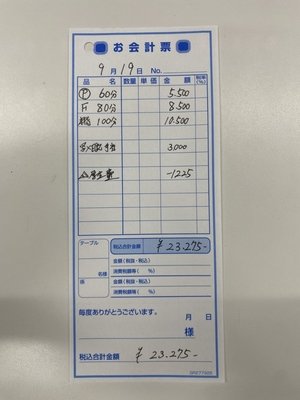 お会計票
9月19日 No.
品名 数量 単価 金額 税率(%)
Ⓟ 60分 5.500
F 80分 8.500
100分 10.500
3.000
△厚生費 -1225
テーブル
名様
係
税込合計金額 ¥23.275-
金額(税抜・税込)
消費税額等( %)
金額(税抜・税込)
消費税額等( %)
毎度ありがとうございます。
月 日
様
税込合計金額 ¥23.275-